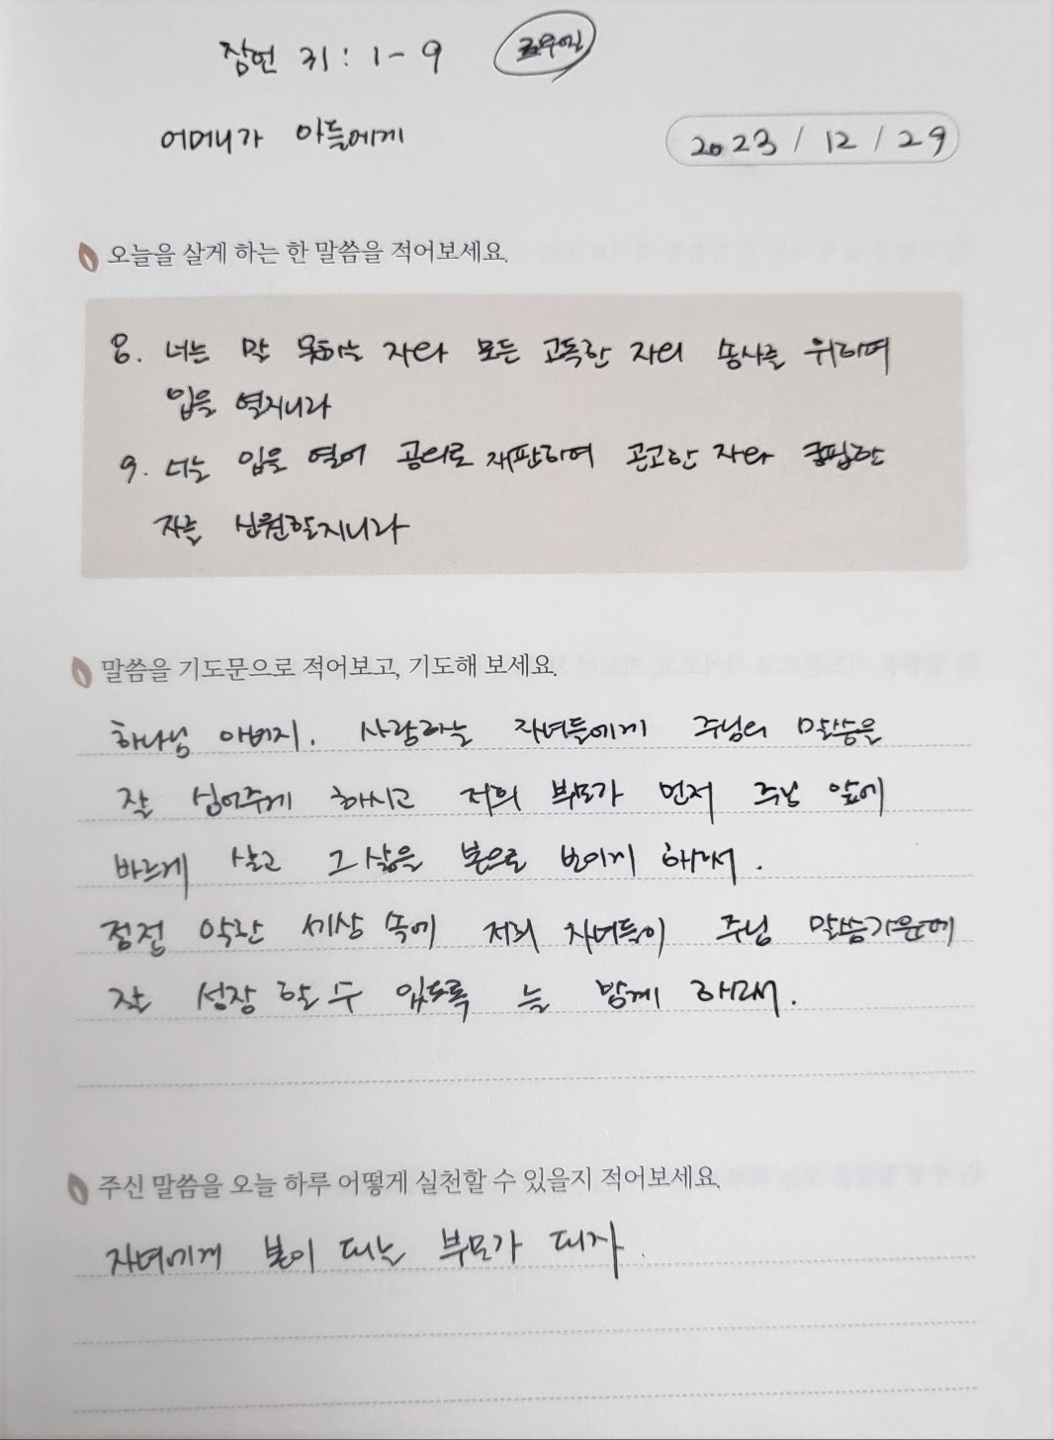 잠언 31 : 1 - 9
어머니가 아들에게
2023 / 12 / 29
오늘을 살게 하는 한 말씀을 적어보세요.
8. 너는 말 못하는 자와 모든 고독한 자의 송사를 위하여
입을 열지니라
9. 너는 입을 열어 공의로 재판하여 곤고한 자와 궁핍한
자를 신원할지니라
말씀을 기도문으로 적어보고, 기도해 보세요.
하나님 아버지. 사랑하는 자녀들에게 주님의 말씀을
잘 심어주게 하시고 저희 부모가 먼저 주님 앞에
바르게 살고 그 삶을 본으로 보이게 하소서.
점점 악한 세상 속에 저희 자녀들이 주님 말씀가운데
잘 성장 할 수 있도록 늘 함께 하소서.
주신 말씀을 오늘 하루 어떻게 실천할 수 있을지 적어보세요.
자녀에게 본이 되는 부모가 되자.